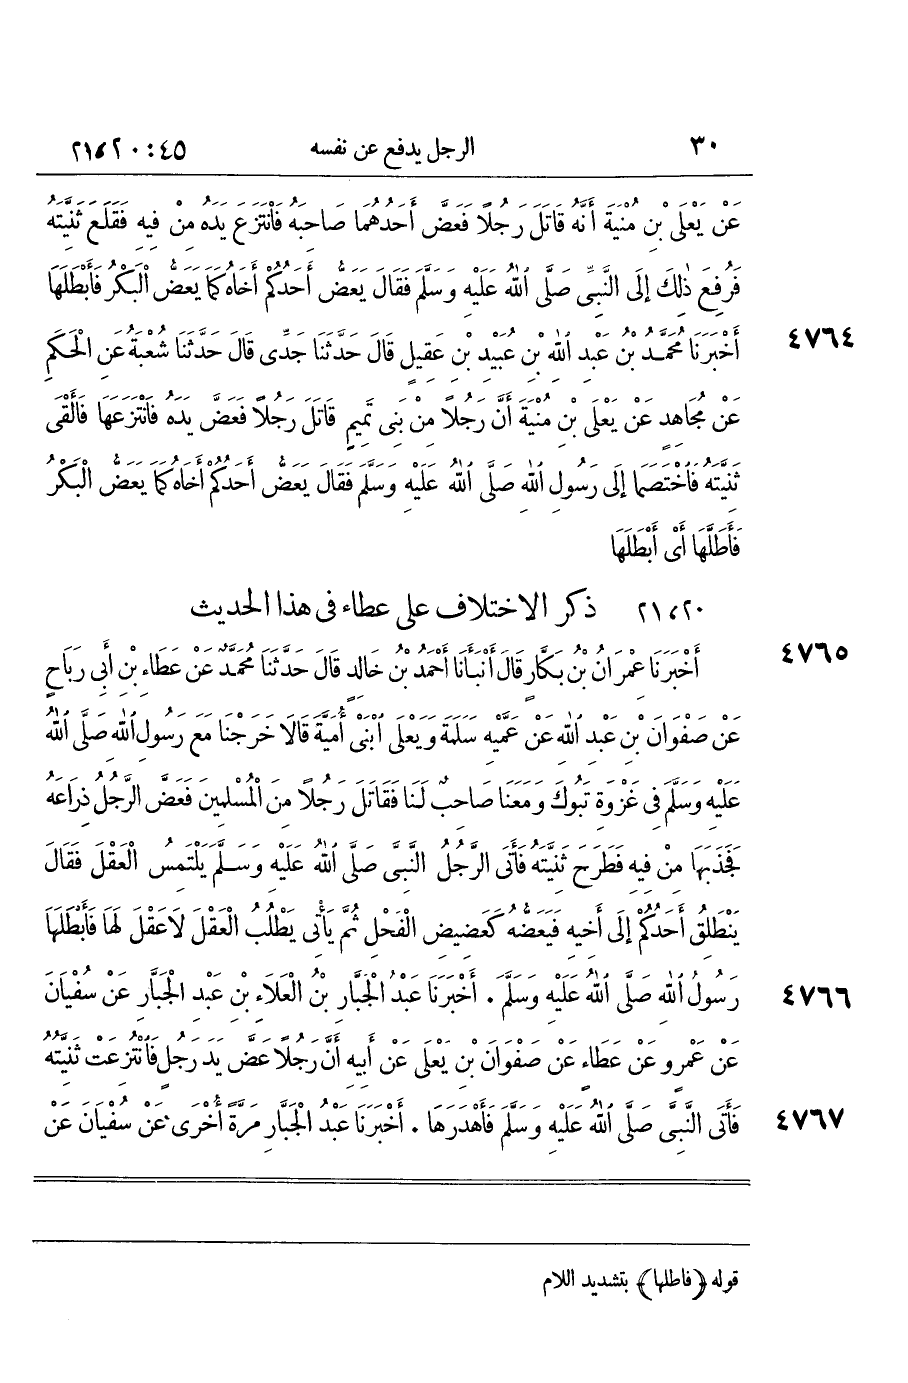 ٣٠ الرجل يدفع عن نفسه ٤٥ : ٢٠، ٢١
عَنْ يَعْلَى بْنِ مُنْيَةَ أَنَّهُ قَاتَلَ رَجُلًا فَعَضَّ أَحَدُهُمَا صَاحِبَهُ فَانْتَزَعَ يَدَهُ مِنْ فِيهِ فَقَلَعَ ثَنِيَّتَهُ
فَرُفِعَ ذٰلِكَ إِلَى النَّبِىِّ صَلَّى اللهُ عَلَيْهِ وَسَلَّمَ فَقَالَ يَعَضُّ أَحَدُكُمْ أَخَاهُ كَمَا يَعَضُّ الْبَكْرُ فَأَبْطَلَهَا
٤٧٦٤ أَخْبَرَنَا مُحَمَّدُ بْنُ عَبْدِ اللهِ بْنِ عُبَيْدِ بْنِ عَقِيلٍ قَالَ حَدَّثَنَا جَدِّى قَالَ حَدَّثَنَا شُعْبَةُ عَنِ الْحَكَمِ
عَنْ مُجَاهِدٍ عَنْ يَعْلَى بْنِ مُنْيَةَ أَنَّ رَجُلًا مِنْ بَنِى تَمِيمٍ قَاتَلَ رَجُلًا فَعَضَّ يَدَهُ فَانْتَزَعَهَا فَأَلْقَى
ثَنِيَّتَهُ فَاخْتَصَمَا إِلَى رَسُولِ اللهِ صَلَّى اللهُ عَلَيْهِ وَسَلَّمَ فَقَالَ يَعَضُّ أَحَدُكُمْ أَخَاهُ كَمَا يَعَضُّ الْبَكْرُ
فَأَطَلَّهَا أَىْ أَبْطَلَهَا
٢٠، ٢١ ذكر الاختلاف على عطاء فى هذا الحديث
٤٧٦٥ أَخْبَرَنَا عِمْرَانُ بْنُ بَكَّارٍ قَالَ أَنْبَأَنَا أَحْمَدُ بْنُ خَالِدٍ قَالَ حَدَّثَنَا مُحَمَّدٌ عَنْ عَطَاءِ بْنِ أَبِى رَبَاحٍ
عَنْ صَفْوَانَ بْنِ عَبْدِ اللهِ عَنْ عَمَّيْهِ سَلَمَةَ وَيَعْلَى ابْنَىْ أُمَيَّةَ قَالَا خَرَجْنَا مَعَ رَسُولِ اللهِ صَلَّى اللهُ
عَلَيْهِ وَسَلَّمَ فِى غَزْوَةِ تَبُوكَ وَمَعَنَا صَاحِبٌ لَنَا فَقَاتَلَ رَجُلًا مِنَ الْمُسْلِمِينَ فَعَضَّ الرَّجُلُ ذِرَاعَهُ
فَجَذَبَهَا مِنْ فِيهِ فَطَرَحَ ثَنِيَّتَهُ فَأَتَى الرَّجُلُ النَّبِىَّ صَلَّى اللهُ عَلَيْهِ وَسَلَّمَ يَلْتَمِسُ الْعَقْلَ فَقَالَ
يَنْطَلِقُ أَحَدُكُمْ إِلَى أَخِيهِ فَيَعَضُّهُ كَعَضِيضِ الْفَحْلِ ثُمَّ يَأْتِى يَطْلُبُ الْعَقْلَ لَا عَقْلَ لَهَا فَأَبْطَلَهَا
٤٧٦٦ رَسُولُ اللهِ صَلَّى اللهُ عَلَيْهِ وَسَلَّمَ . أَخْبَرَنَا عَبْدُ الْجَبَّارِ بْنُ الْعَلَاءِ بْنِ عَبْدِ الْجَبَّارِ عَنْ سُفْيَانَ
عَنْ عَمْرٍو عَنْ عَطَاءٍ عَنْ صَفْوَانَ بْنِ يَعْلَى عَنْ أَبِيهِ أَنَّ رَجُلًا عَضَّ يَدَ رَجُلٍ فَانْتُزِعَتْ ثَنِيَّتُهُ
٤٧٦٧ فَأَتَى النَّبِىَّ صَلَّى اللهُ عَلَيْهِ وَسَلَّمَ فَأَهْدَرَهَا . أَخْبَرَنَا عَبْدُ الْجَبَّارِ مَرَّةً أُخْرَى عَنْ سُفْيَانَ عَنْ
قوله ﴿فاطلها﴾ بتشديد اللام